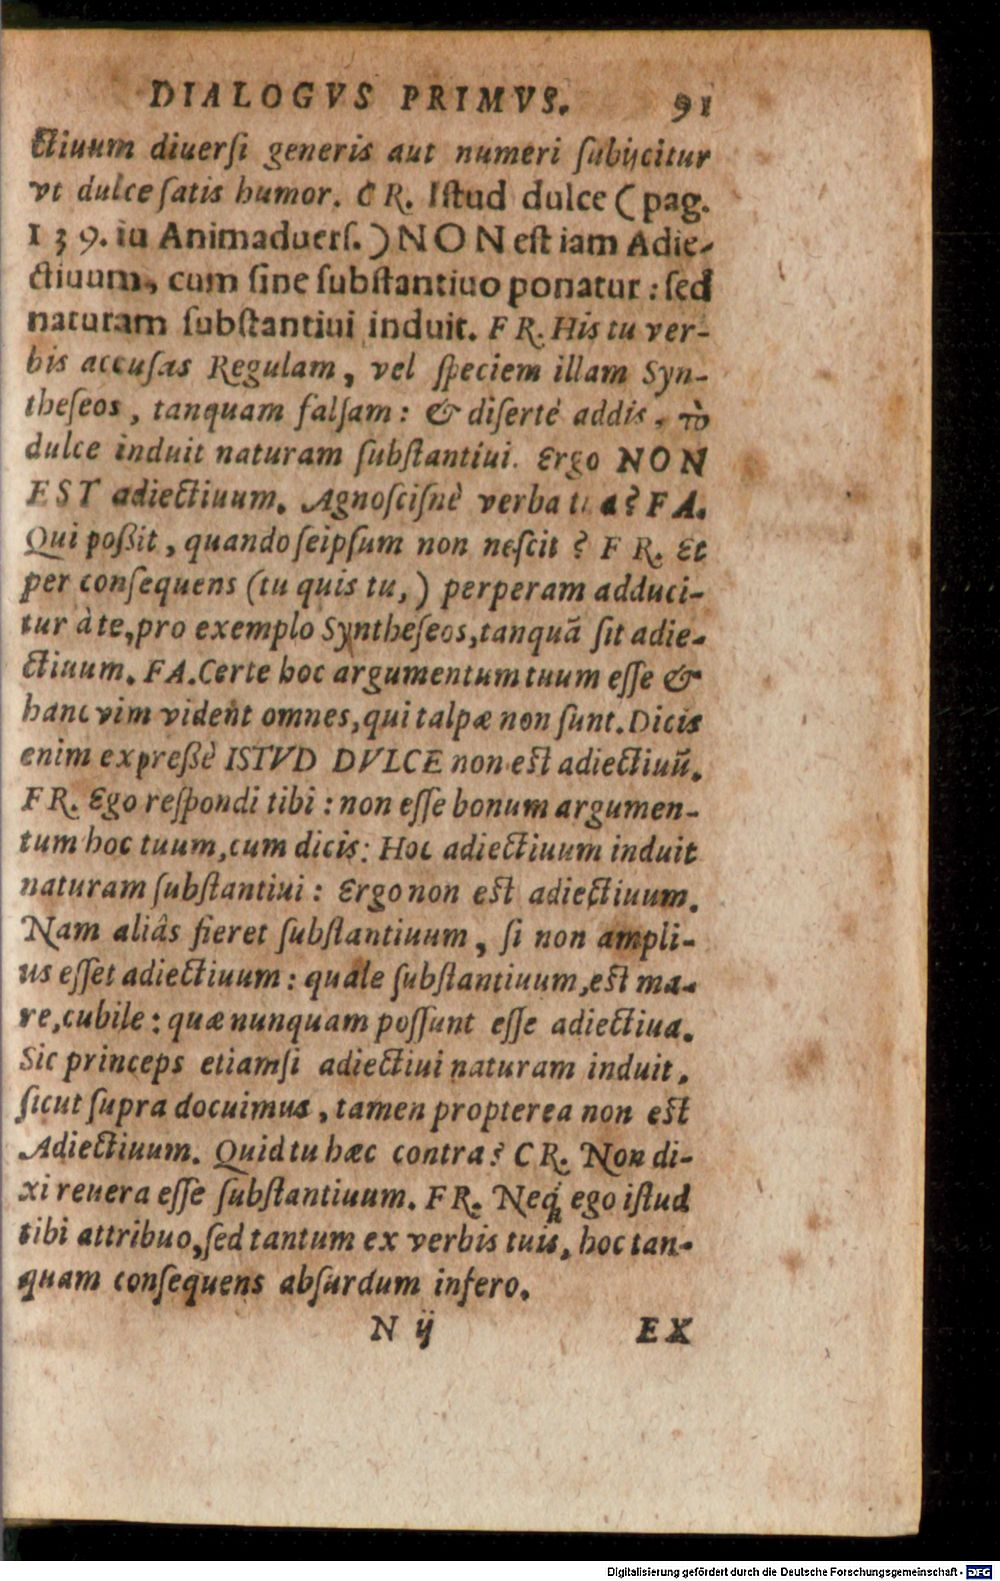 DIALOGVS PRIMVS. 91
ctiuum diuersi generis aut numeri subijcitur
vt dulce satis humor. CR. Istud dulce (pag.
139. in Animaduers.) NON est iam Adie-
ctiuum, cum sine substantiuo ponatur: sed
naturam substantiui induit. FR. His tu ver-
bis accusas Regulam, vel speciem illam Syn-
theseos, tanquam falsam: & disertè addis, τὸ
dulce induit naturam substantiui. Ergo NON
EST adiectiuum. Agnoscisnè verba tua? FA.
Qui poßit, quando seipsum non nescit? FR. Et
per consequens (tu quis tu,) perperam adduci-
tur à te, pro exemplo Syntheseos, tanquã sit adie-
ctiuum. FA. Certe hoc argumentum tuum esse &
hanc vim vident omnes, qui talpæ non sunt. Dicis
enim expreßè ISTVD DVLCE non est adiectiuũ.
FR. Ego respondi tibi: non esse bonum argumen-
tum hoc tuum, cum dicis: Hoc adiectiuum induit
naturam substantiui: Ergo non est adiectiuum.
Nam aliâs fieret substantiuum, si non ampli-
us esset adiectiuum: quale substantiuum, est ma-
re, cubile: quæ nunquam possunt esse adiectiua.
Sic princeps etiamsi adiectiui naturam induit,
sicut supra docuimus, tamen propterea non est
Adiectiuum. Quid tu hæc contra? CR. Non di-
xi reuera esse substantiuum. FR. Neq; ego istud
tibi attribuo, sed tantum ex verbis tuis, hoc tan-
quam consequens absurdum infero.
N ij EX
Digitalisierung gefördert durch die Deutsche Forschungsgemeinschaft - DFG